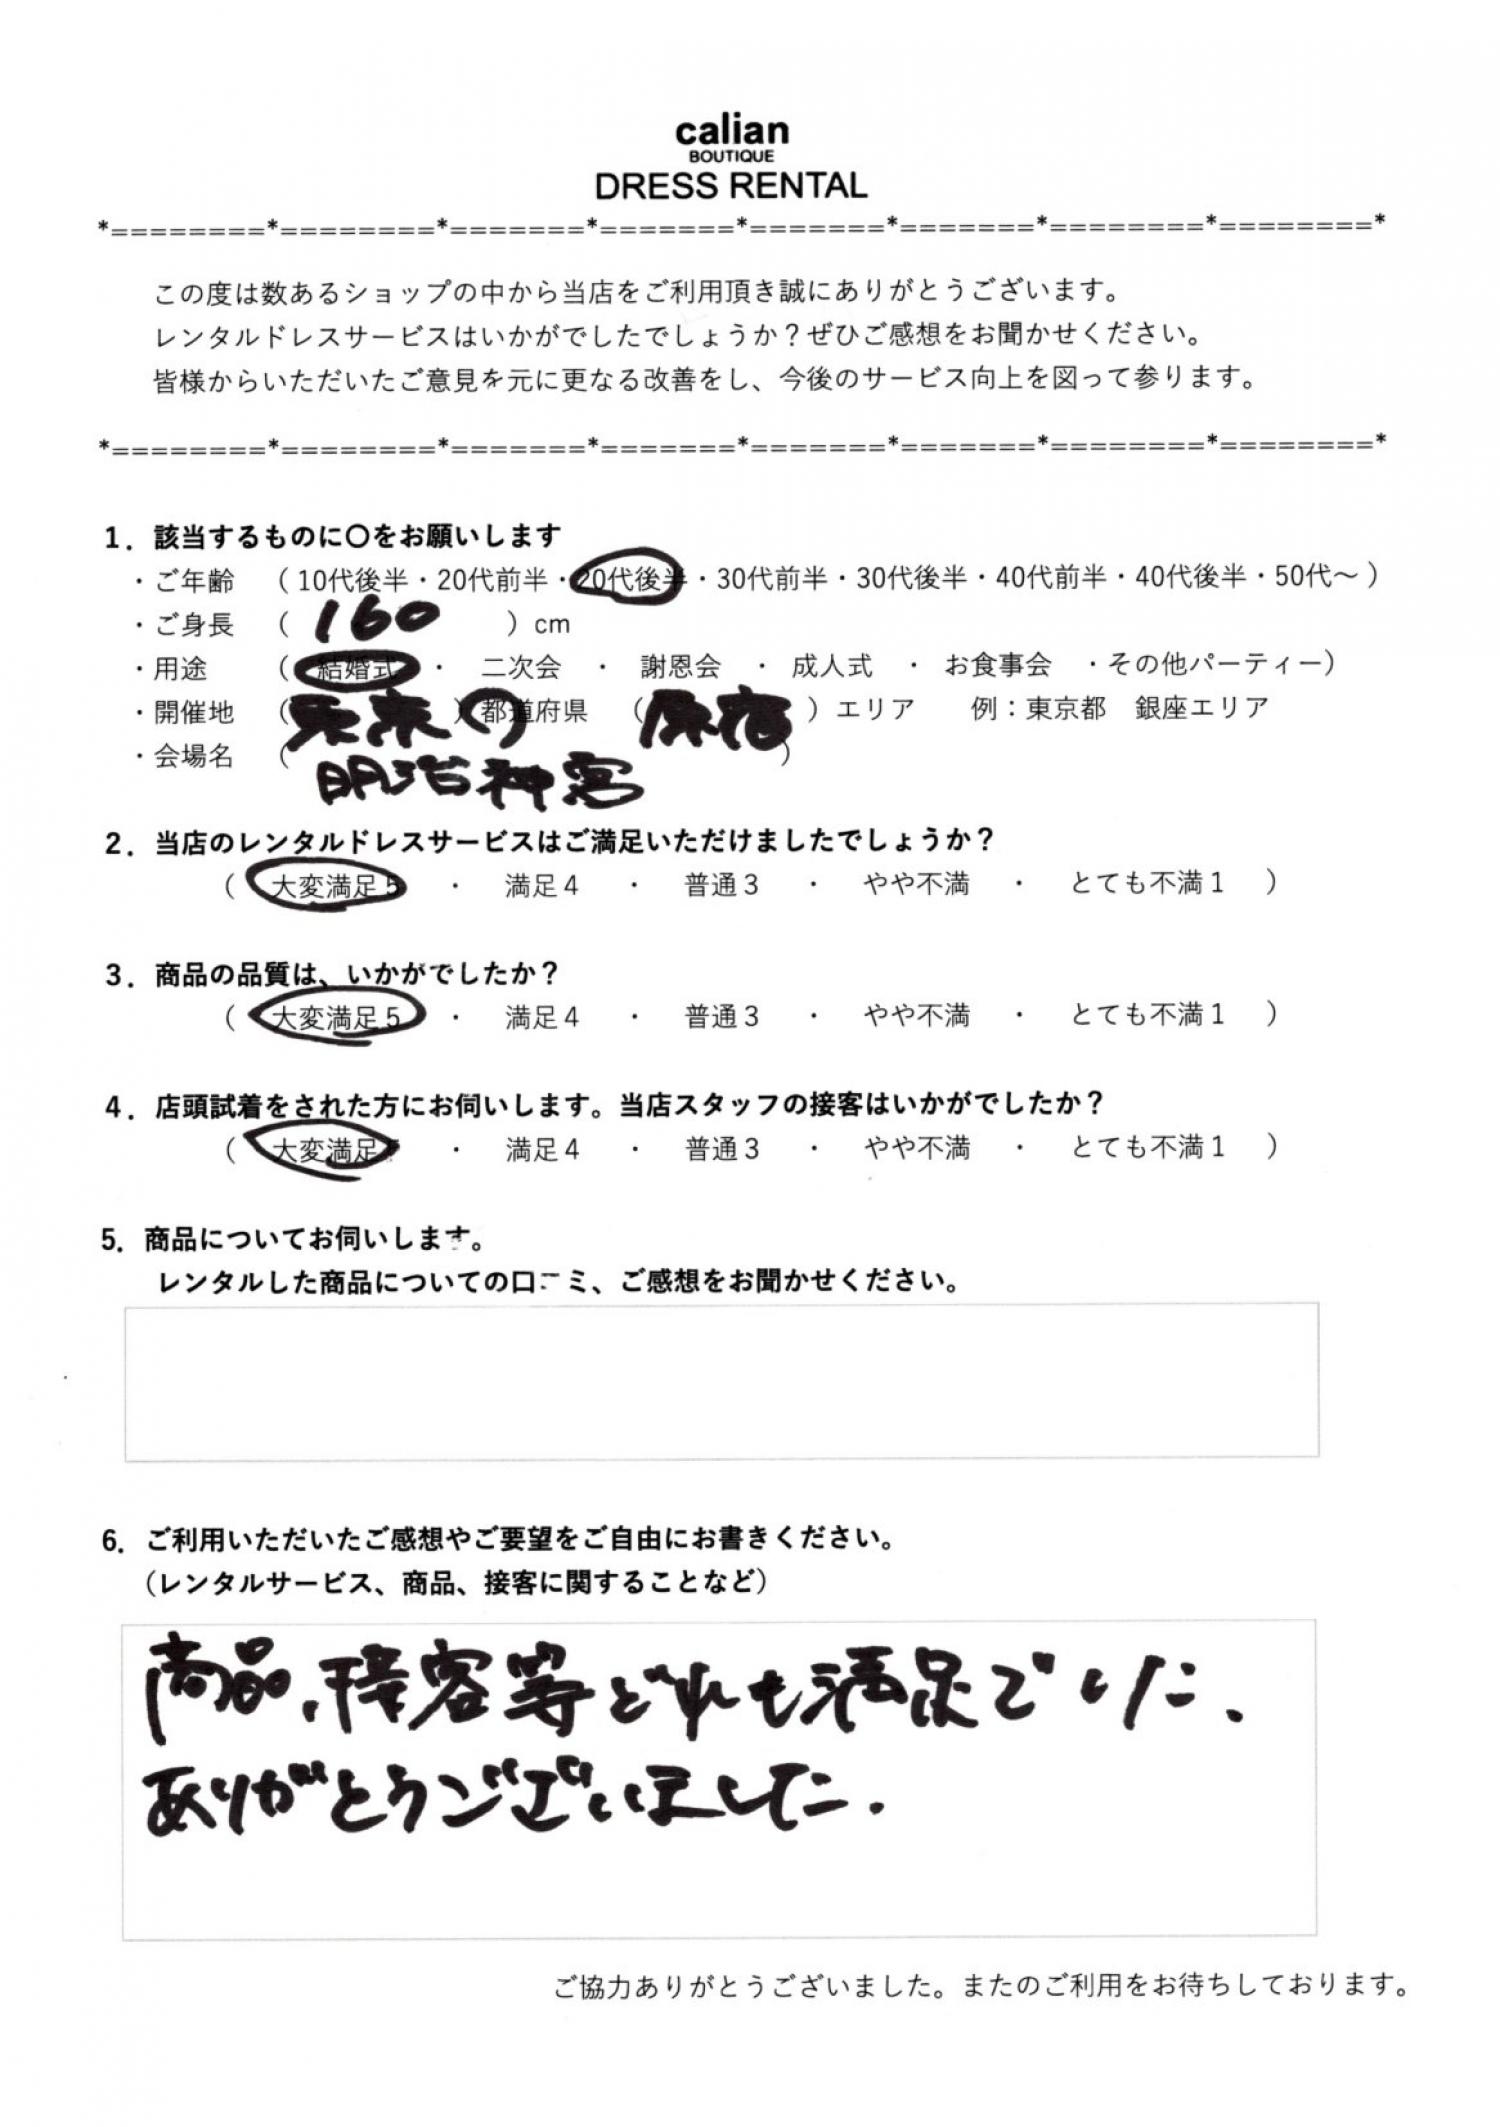 calian
BOUTIQUE
DRESS RENTAL
*========*========*=======*=======*=======*=======*========*========*
この度は数あるショップの中から当店をご利用頂き誠にありがとうございます。
レンタルドレスサービスはいかがでしたでしょうか？ぜひご感想をお聞かせください。
皆様からいただいたご意見を元に更なる改善をし、今後のサービス向上を図って参ります。
*========*========*=======*=======*=======*=======*========*========*
1．該当するものに〇をお願いします
・ご年齢 （10代後半・20代前半・20代後半・30代前半・30代後半・40代前半・40代後半・50代〜）
・ご身長 （ 160 ）cm
・用途 （ 結婚式 ・ 二次会 ・ 謝恩会 ・ 成人式 ・ お食事会 ・その他パーティー）
・開催地 （ 東京 ）都道府県 （ 原宿 ）エリア 例：東京都 銀座エリア
・会場名 （ 明治神宮 ）
2．当店のレンタルドレスサービスはご満足いただけましたでしょうか？
（ 大変満足5 ・ 満足4 ・ 普通3 ・ やや不満 ・ とても不満1 ）
3．商品の品質は、いかがでしたか？
（ 大変満足5 ・ 満足4 ・ 普通3 ・ やや不満 ・ とても不満1 ）
4．店頭試着をされた方にお伺いします。当店スタッフの接客はいかがでしたか？
（ 大変満足5 ・ 満足4 ・ 普通3 ・ やや不満 ・ とても不満1 ）
5．商品についてお伺いします。
レンタルした商品についての口コミ、ご感想をお聞かせください。
6．ご利用いただいたご感想やご要望をご自由にお書きください。
（レンタルサービス、商品、接客に関することなど）
商品、接客等どれも満足でした。
ありがとうございました。
ご協力ありがとうございました。またのご利用をお待ちしております。